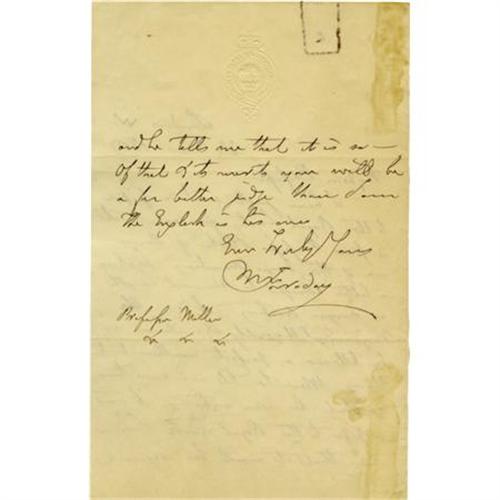 and he tells me that it is so —
Of that & its merits you will be
a far better judge than I am
The English is his own
Ever Truly Yours
M Faraday
Professor Miller
&c &c &c